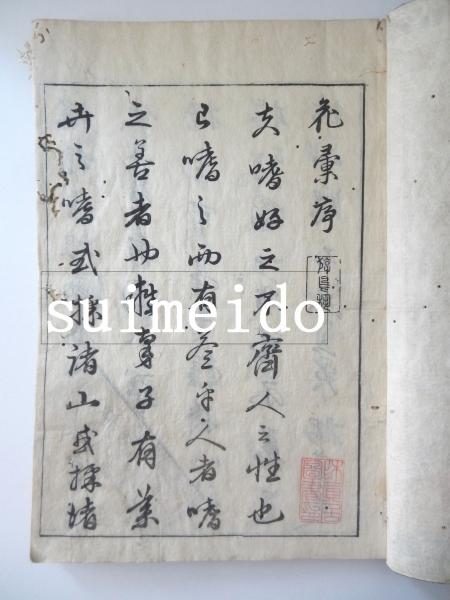 花彙序
夫嗜好之不齊人之性也
已嗜之而有益乎人者嗜
之善者也
子有業
卉之嗜或採諸山或採諸
suimeido